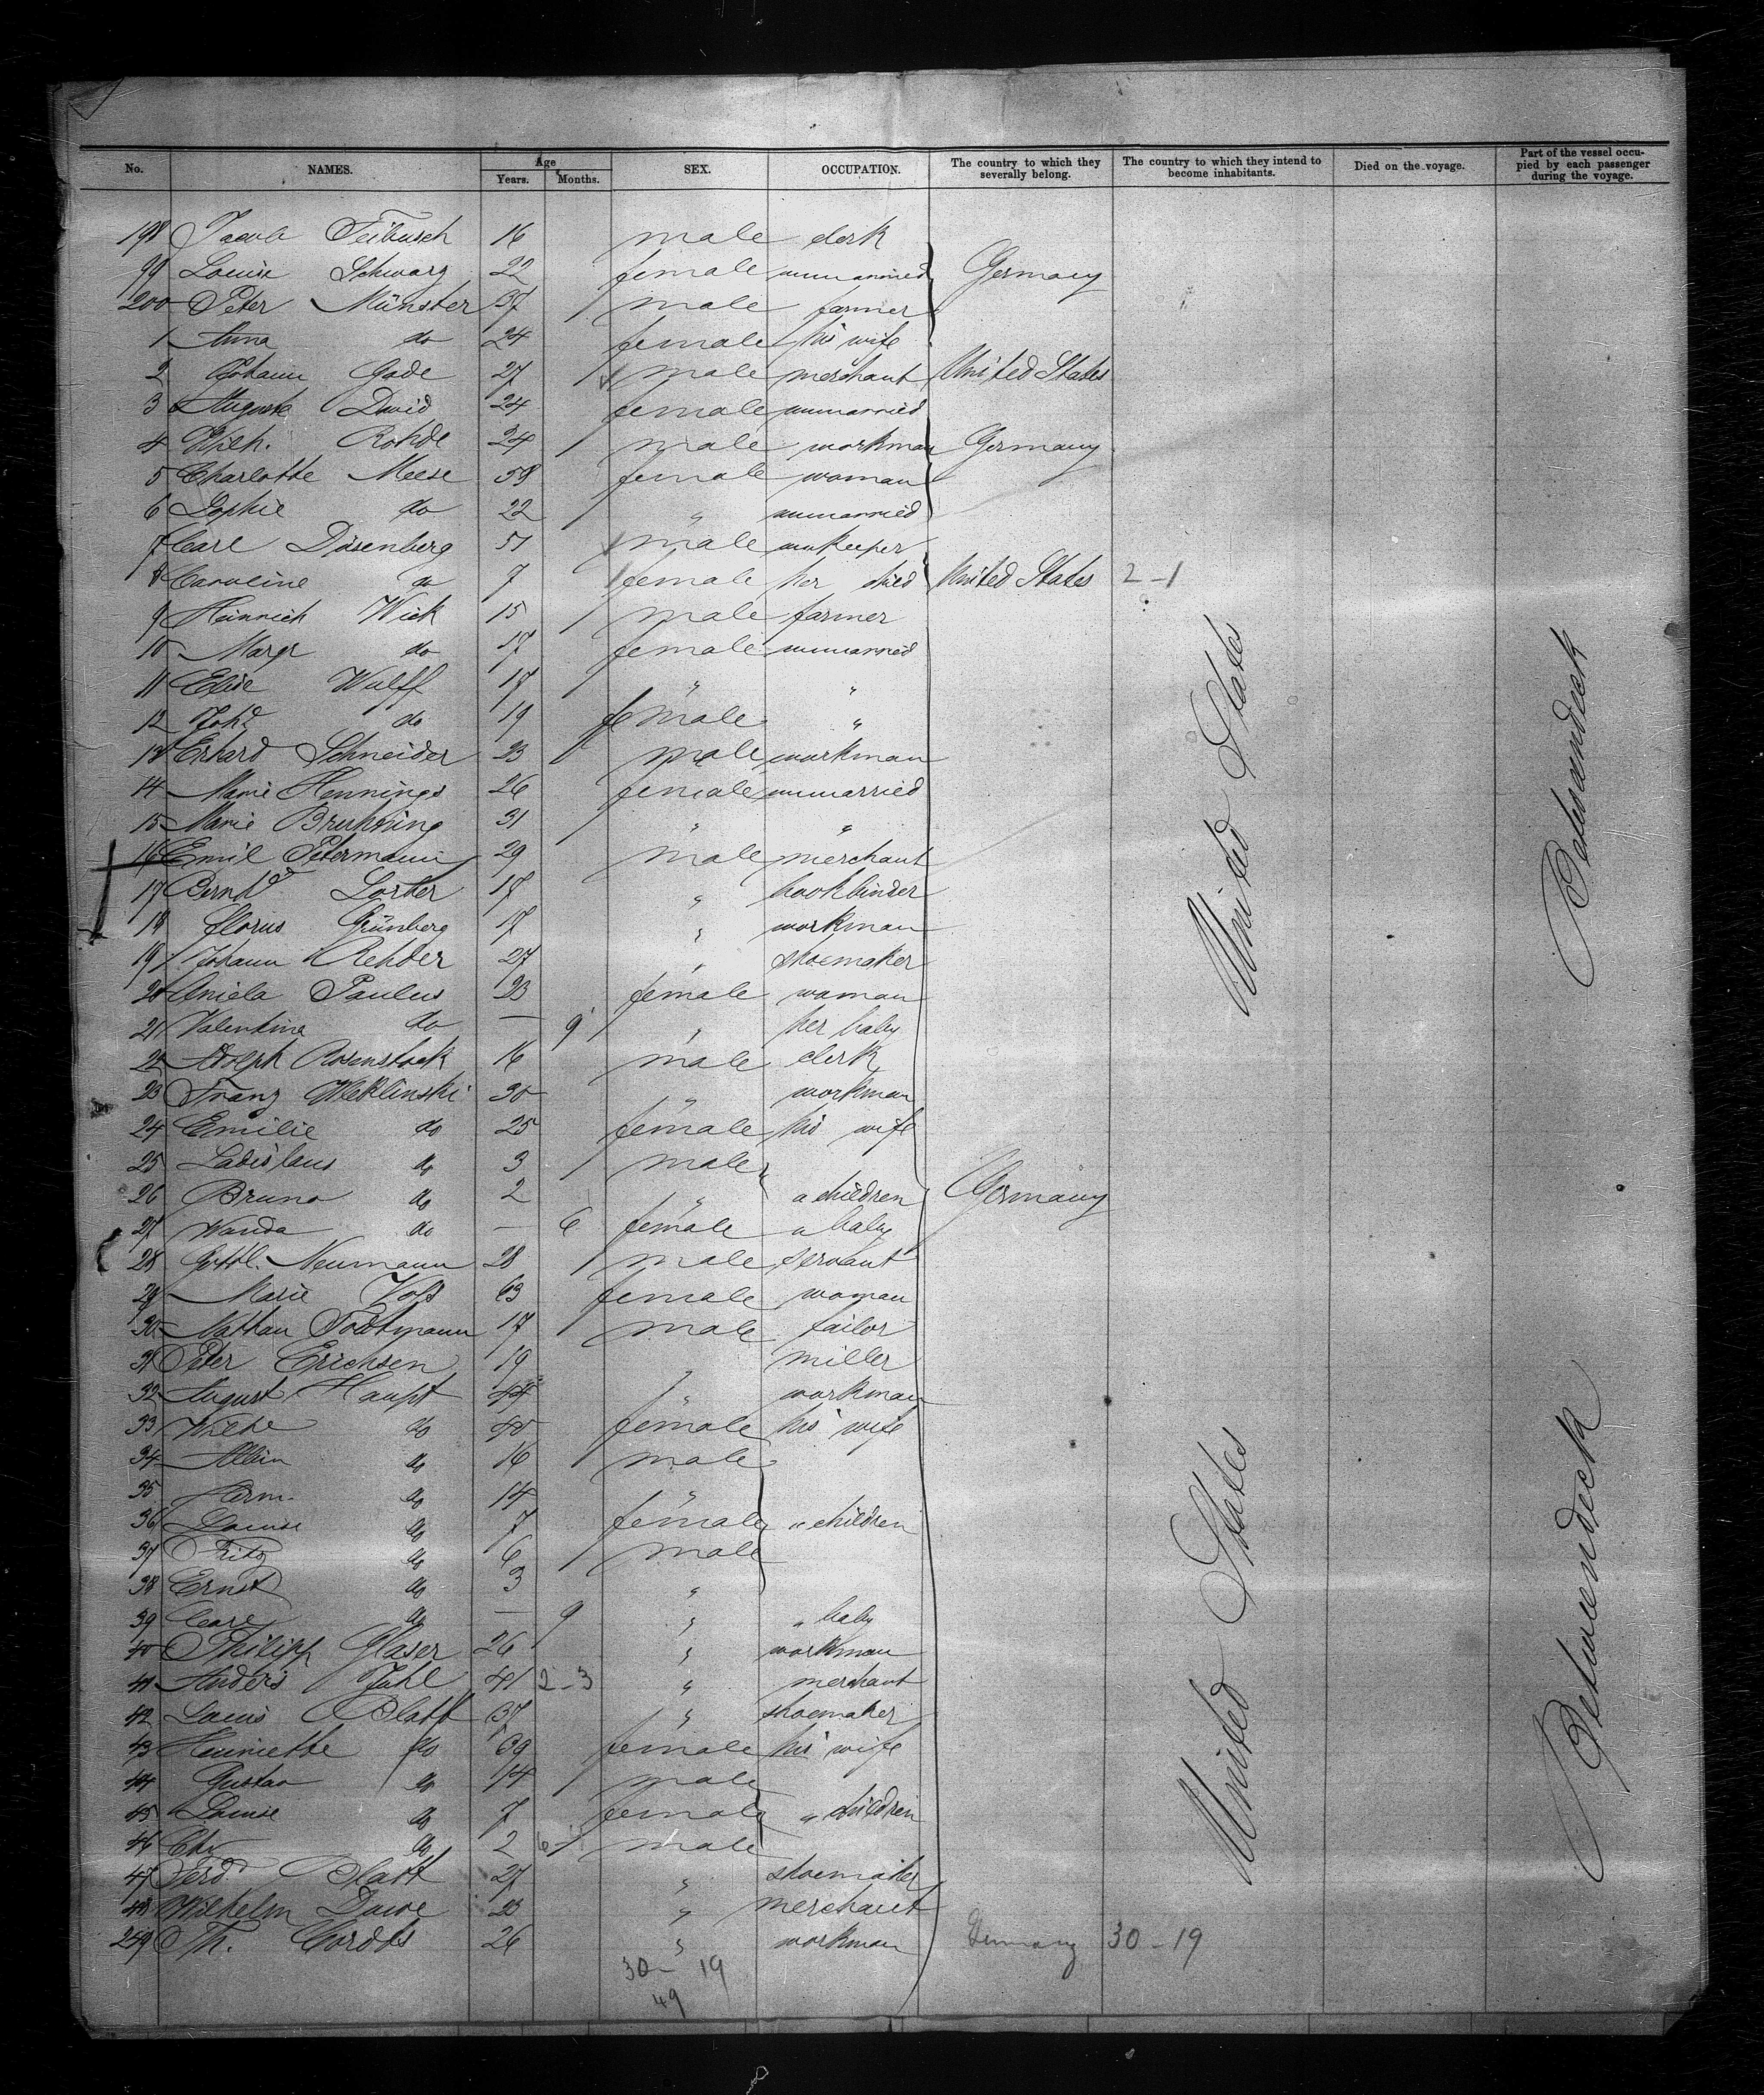 No. NAMES. Age Years. Months. SEX. OCCUPATION. The country to which they severally belong. The country to which they intend to become inhabitants. Died on the voyage. Part of the vessel occupied by each passenger during the voyage.
198 Jacob Feibusch 16 male clerk
99 Louise Schwarz 22 female unmarried Germany
200 Peter Münster 37 male farmer
1 Anna do 24 female his wife
2 Johann Gode 27 male merchant United States
3 Auguste David 24 female unmarried
4 Wilh. Rohde 24 male workman Germany
5 Charlotte Meese 58 female woman
6 Sophie do 22 " unmarried
7 Carl Düsenberg 51 male
8 Caroline do 7 female her child United States 2-1
9 Heinrich Wick 15 male farmer
10 Margr do 17 female unmarried
11 Elise Wulff 18 " "
12 do 19 female "
13 Erhard Schneider 23 male workman
14 Marie Hennings 26 female unmarried
15 Marie 31 " "
16 Emil Petermann 29 male merchant
17 Bernhd Lorber 18 " bookbinder
18 Grünberg 17 " workman
19 Johann Rehder 27 " shoemaker
20 Aniela Paulus 23 female woman
21 Valentine do — 9 " her baby
22 Adolph Rosenstock 16 male clerk
23 Franz 30 " workman
24 Emilie do 25 female his wife
25 Ladislaus do 3 male
26 Bruno do 2 " " children Germany
27 Wanda do — 6 female " baby
28 Gottl. Neumann 28 male servant
29 Marie Voss 63 female woman
30 Nathan 17 male tailor
31 Peter Erichsen 19 " miller
32 August Haupt 44 " workman
33 Wilhe do 40 female his wife
34 Albin do 16 male
35 Herm. do 14 "
36 Louise do 7 female " children
37 Fritz do 6 male
38 Ernst do 3 "
39 Carl do — 9 " " baby
40 Philipp Glaser 26 " workman
41 Anders Juhl 41 2-3 " merchant
42 Louis Blatt 37 " shoemaker
43 Henriette do 39 female his wife
44 Gustav do 14 male
45 Louise do 7 female " children
46 do 2 6 male
47 Ferd Blatt 27 " shoemaker
48 Wilhelm 23 " merchant
249 Th. Cordts 26 " workman Germany 30-19
30 - 19
49
United States
Betweendeck
United States
Betweendeck